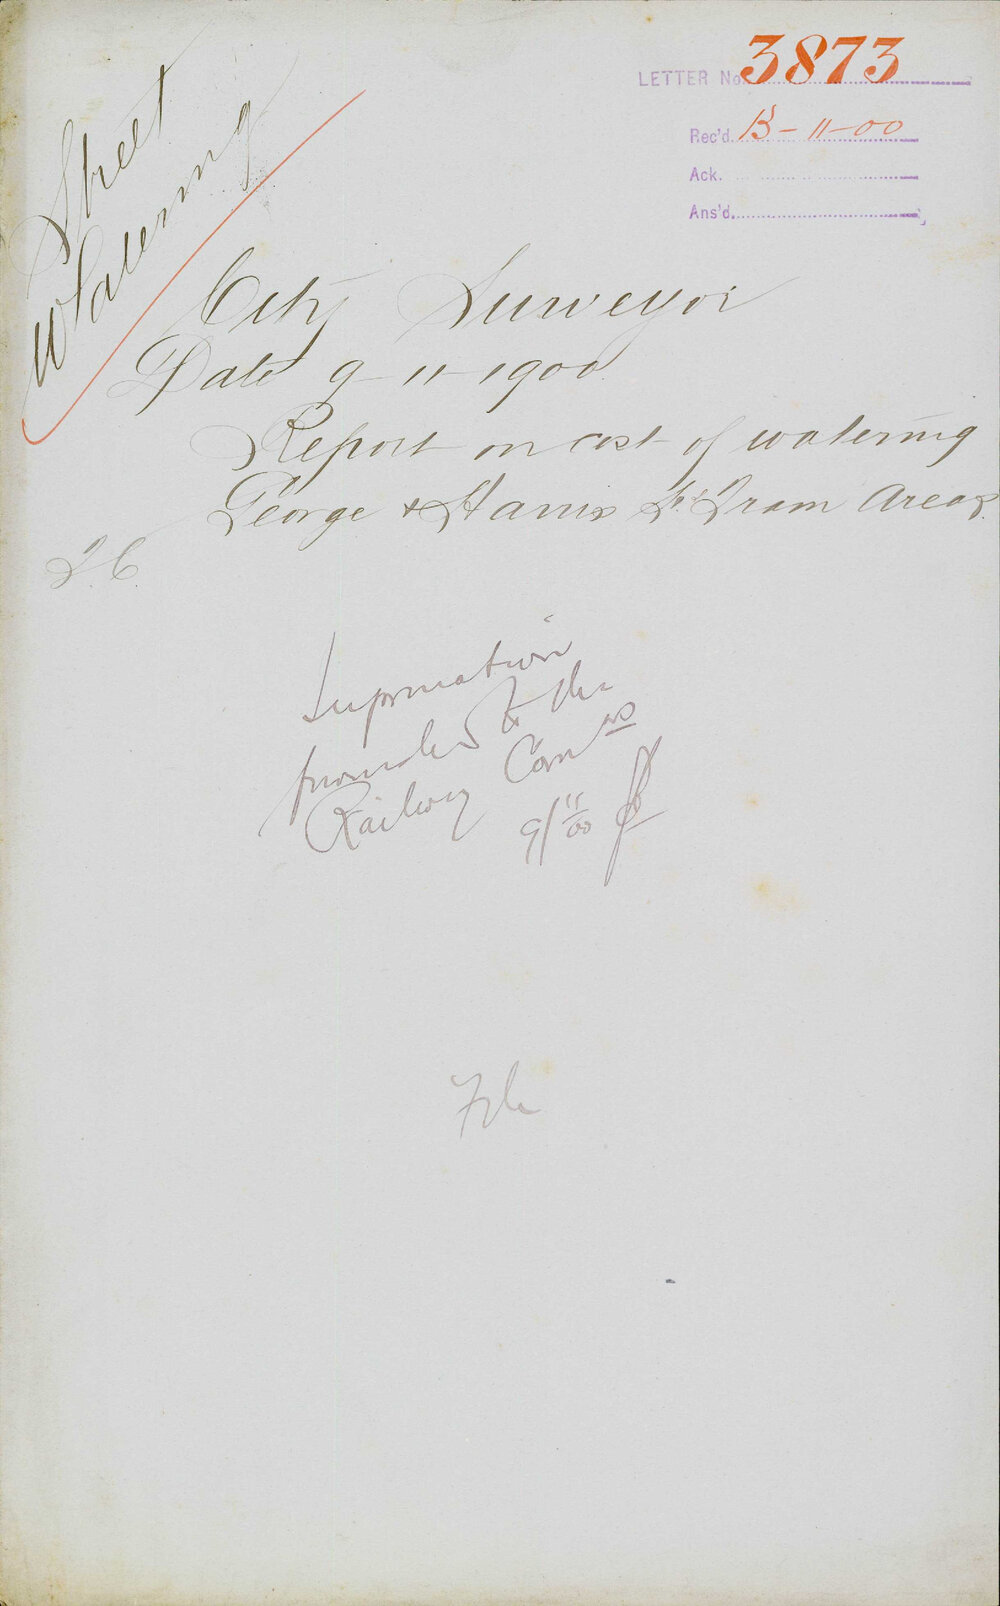 Street
Watering
LETTER No. 3873
Rec'd. 13-11-00
Ack.
Ans'd.
City Surveyor
Date 9-11-1900
Report on cost of watering
George & Harris St Tram Areas
Information
furnished to the
Railway Comrs
9/11/00
File